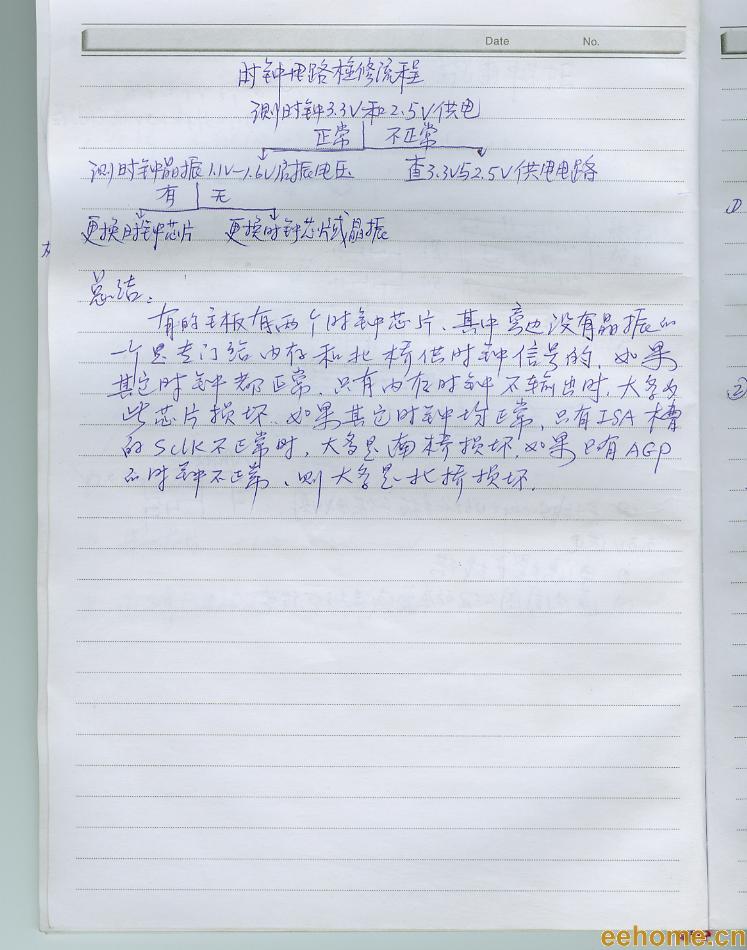 Date No.
时钟电路检修流程
测时钟3.3V和2.5V供电
正常 不正常
测时钟晶振1.1V-1.6V启振电压 查3.3V与2.5V供电电路
有 无
更换时钟芯片 更换时钟芯片或晶振
总结:
有的主板有两个时钟芯片、其中旁边没有晶振的
一个是专门给内存和北桥供时钟信号的,如果
其它时钟都正常,只有内存时钟不输出时,大多为
此芯片损坏。如果其它时钟均正常,只有ISA槽
的SCLK不正常时,大多是南桥损坏,如果只有AGP
的时钟不正常、则大多是北桥损坏.
①
②
eehome.cn